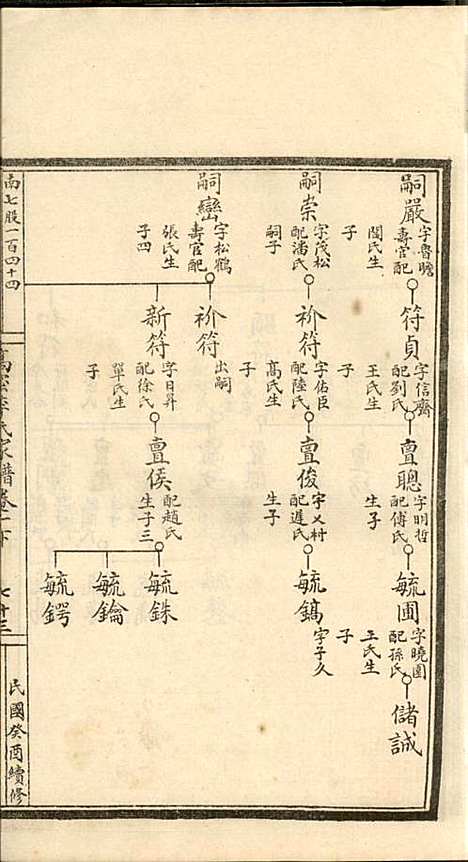 嗣嚴
字魯瞻
壽官配
閻氏生
子
符貞
字信齋
配劉氏
王氏生
子
亶聰
字明哲
配傅氏
生子
毓圃
字曉園
配孫氏
王氏生
子
儲誠
嗣崇
字茂松
配潘氏
嗣子
衸符
字佑臣
配陸氏
高氏生
子
亶俊
字乂村
配遲氏
生子
毓鎬
字子久
嗣巒
字松鶴
壽官配
張氏生
子四
衸符
出嗣
新符
字日昇
配徐氏
單氏生
子
亶侯
配趙氏
生子三
毓銖
毓錀
毓鍔
南七股一百四十四
李氏家譜卷二下
七十三
民國癸酉續修